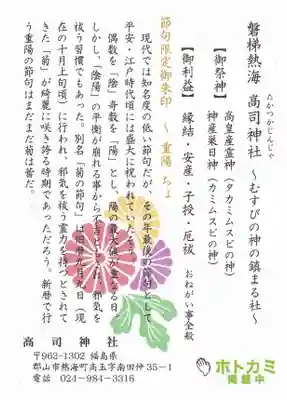 磐梯熱海 高司神社 ~むすびの神の鎮まる社~
たかつかじんじゃ
【御祭神】 高皇産霊神(タカミムスビの神)
神産巣日神(カミムスビの神)
【御利益】 縁結・安産・子授・厄祓 おねがい事全般
節句限定御朱印 ~重陽 ちょ
現代では知名度の低い節句だが、その年最後の節句として
平安・江戸時代頃には盛大に祝われていたそ
偶数を「陰」奇数を「陽」とし、陽の最大値が重なる日。
しかし、「陰陽」の平衡が崩れる事から不吉とした、邪気を
祓う習慣でもあった。別名「菊の節句」は旧暦九月九日(現
在の十月上旬頃)に行われ、邪気を祓う霊力を持つとされて
きた「菊」が綺麗に咲き誇る時期であっただろう。新暦で行
う重陽の節句はまだまだ菊は蕾だ。
高司神社
〒963-1302 福島県
郡山市熱海町高玉字南田仲35-1
電話 024-984-3316
ホトカミ
掲載中